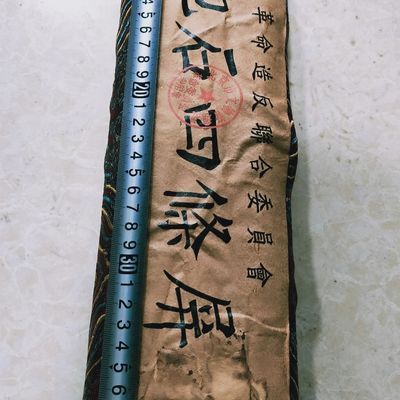 革命造反聯合委員會
石四條屏
4 5 6 7 8 9 20 1 2 3 4 5 6 7 8 9 30 1 2 3 4 5 6